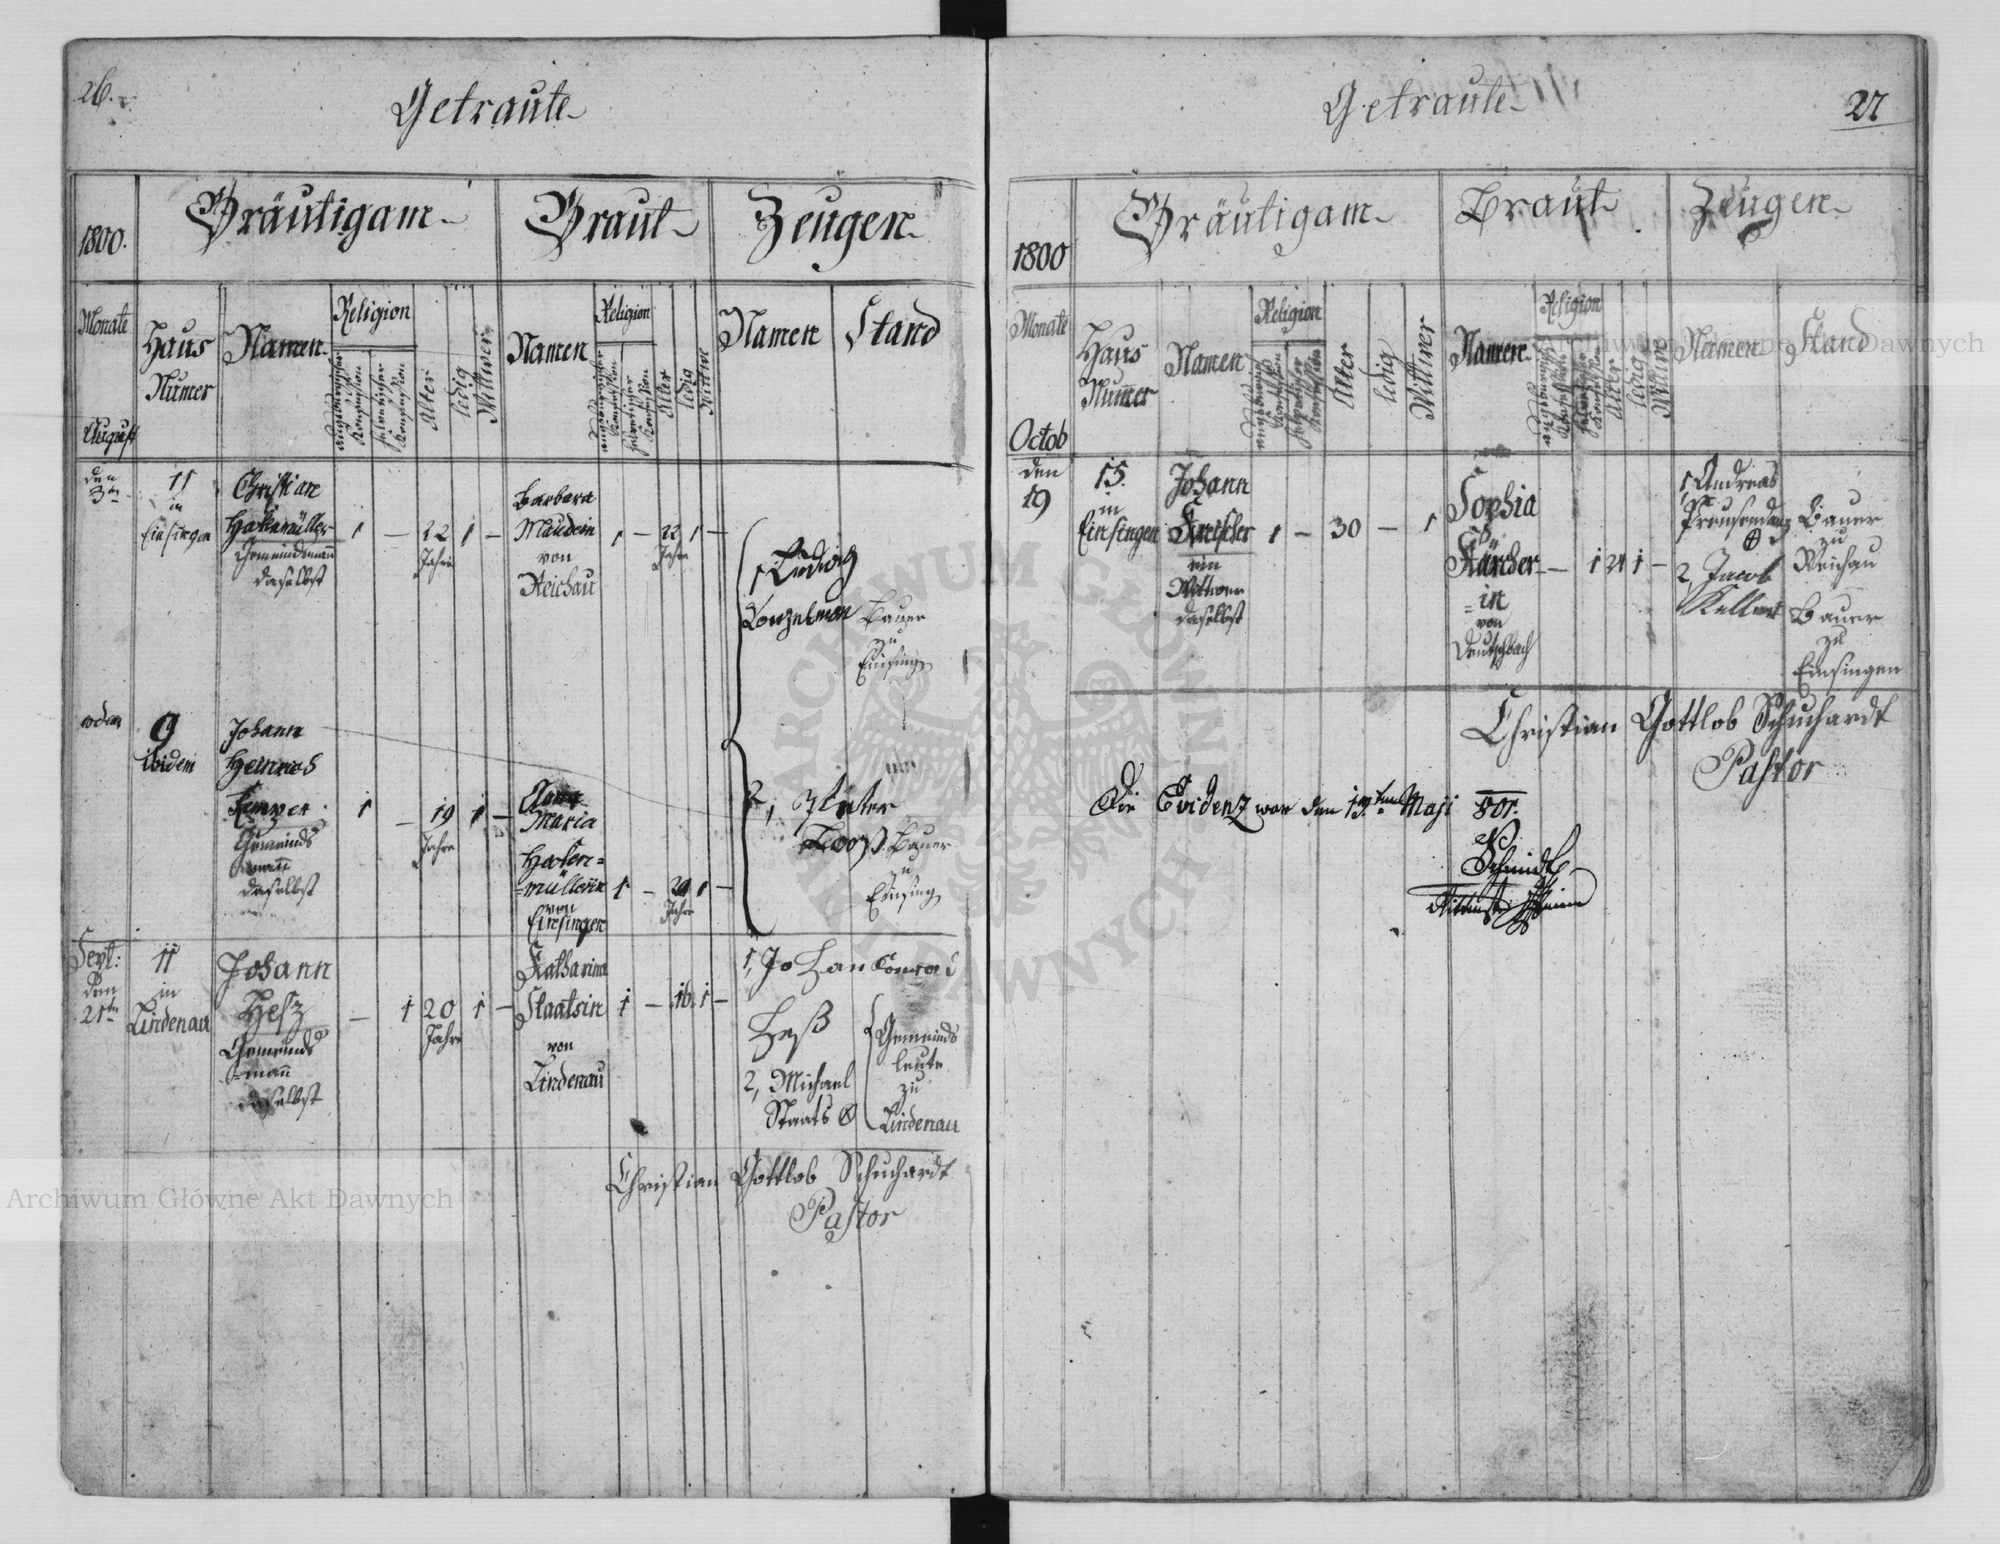 26.
Getraute
1800.
Bräutigam
Braut
Zeugen
Monate
Haus Numer
Namen
Religion
Augsburgischer Confession
Helvetischer Confession
Alter
ledig
Wittwer
Namen
Religion
Augsburgischer Confession
Helvetischer Confession
Alter
ledig
Wittwe
Namen
Stand
August
den 3ten
11
in
Einsingen
Christian
Hakemüller
Gemeindsmann
daselbst
1
—
22
Jahre
1
—
Barbara
von
Reichau
1
—
22
Jahre
1
—
1, Ludwig
Konzelman
Bauer
zu
Einsing
9
ibidem
Johann
Heinrich
Kemper
Gemeinds
mann
daselbst
1
—
19
Jahre
1
—
Maria
Haken=
=müllerin
von
Einsingen
1
—
Jahre
1
—
2, Peter
Bauer
zu
Einsing
Sept:
den
21ten
11
in
Lindenau
Johann
Hesz
Gemeinds
=mann
daselbst
—
1
20
Jahre
1
—
Katharina
Staatsin
von
Lindenau
1
—
16
1
—
1, Johan Conrad
Heß
2, Michael
Staats
Gemeinds
leute
zu
Lindenau
Christian Gottlob Schuchardt
Pastor
Archiwum Główne Akt Dawnych
Getraute
27
1800
Bräutigam
Braut
Zeugen
Monate
Haus Numer
Namen
Religion
Augsburgischer Confession
Helvetischer Confession
Alter
ledig
Wittwer
Namen
Religion
Augsburgischer Confession
Helvetischer Confession
Alter
ledig
Wittwe
Namen
Stand
Archiwum Główne Akt Dawnych
Octob
den
19
15.
in
Einsingen
Johann
ein
Wittwer
daselbst
1
—
30
—
1
Sophia
=in
von
Deutschbach
—
1
21
1
—
1, Andreas
2, Jacob
Keller
Bauer
zu
Reichau
Bauer
zu
Einsingen
Christian Gottlob Schuchardt
Pastor
Die Evidenz war den 15ten Maji 801.
Schmidt
ARCHIWUM GŁÓWNE AKT DAWNYCH